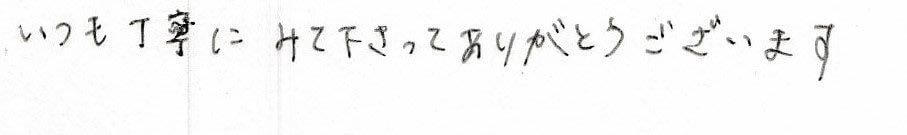 いつも丁寧に みて下さってありがとうございます